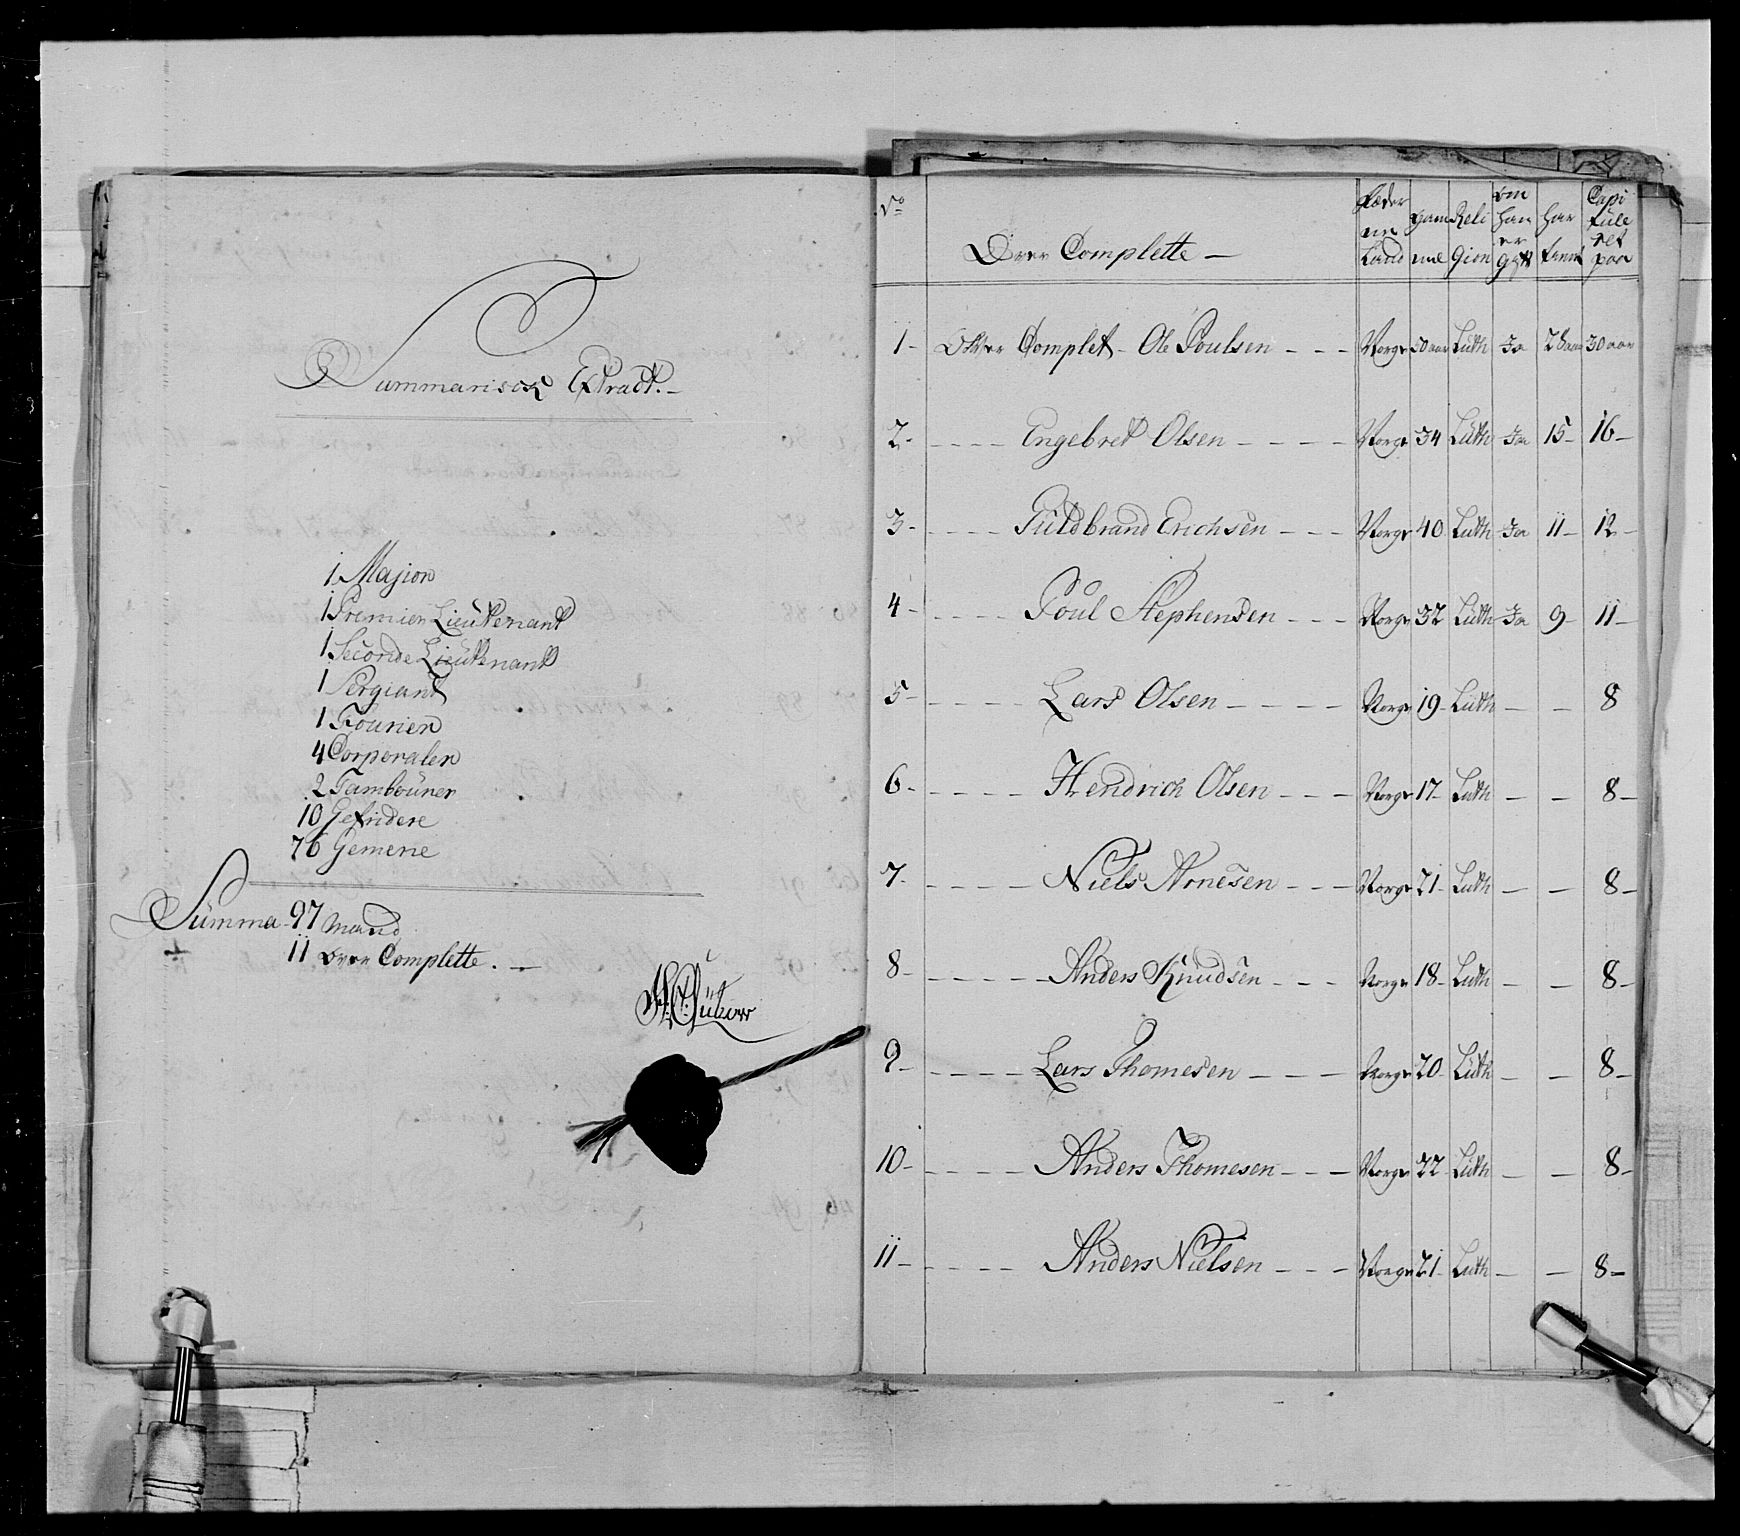 Summarisck Extract.
1 Majior
1 Premier Lieutenant
1 Seconde Lieutenant
1 Sergiant
1 Fourier
4 Corporaler
2 Tambouner
10 Gefridere
76 Gemene
Summa 97 Mand
11 over Complette.
No
Over Complette
Fæder ne Land
gam mel
Reli gion
om han er gift
har tient
Capi tule ret paa
1 - Over Complet - Ole Poulsen - - - Norge 50 aar Luth Ja 28 aar 30 aar
2 - - - - - Engebret Olsen - - - - Norge 34 Luth Ja 15 - 16 -
3 - - - - - Guldbrand Erichsen - - - Norge 40 Luth Ja 11 - 12 -
4 - - - - - Poul Stephensen - - - Norge 32 Luth Ja 9 - 11 -
5 - - - - - Lars Olsen - - - - Norge 19 - Luth - - 8
6 - - - - - Hendrich Olsen - - - Norge 17 - Luth - - 8 -
7 - - - - - Niels Aonesen - - - Norge 21 - Luth - - 8 -
8 - - - - - Anders Knudsen - - - Norge 18 - Luth - - 8 -
9 - - - - - Lars Thomesen - - - Norge 20 - Luth - - 8 -
10 - - - - - Anders Thomesen - - - Norge 22 Luth - - 8 -
11 - - - - - Anders Nielsen - - - Norge 21 - Luth - - 8 -